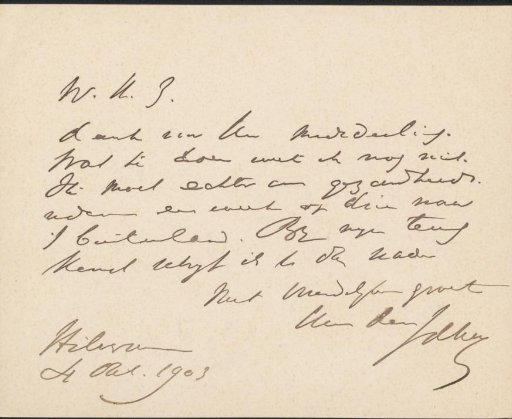 W. H. Z.
dank voor Uw mededeeling.
Wat te doen weet ik nog niet.
Ik moet echter om gezondheids-
redenen een week of drie naar
't buitenland. Bij mijn terug
komst schrijf ik U dan nader
Met vriendelijken groet
Uw dw
Hilversum
4 Oct. 1903